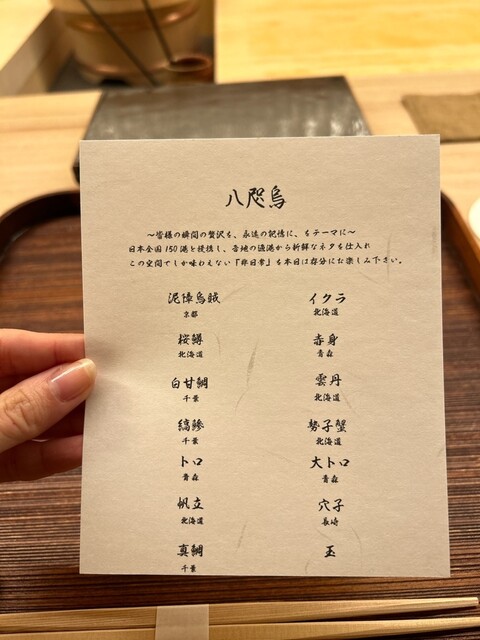 八咫烏
～皆様の瞬間の贅沢を、永遠の記憶に、をテーマに～
日本全国150港を提携し、各地の漁港から新鮮なネタを仕入れ
この空間でしか味わえない「非日常」を本日は存分にお楽しみ下さい。
泥障烏賊
京都
桜鱒
北海道
白甘鯛
千葉
縞鯵
千葉
トロ
青森
帆立
北海道
真鯛
千葉
イクラ
北海道
赤身
青森
雲丹
北海道
勢子蟹
北海道
大トロ
青森
穴子
長崎
玉